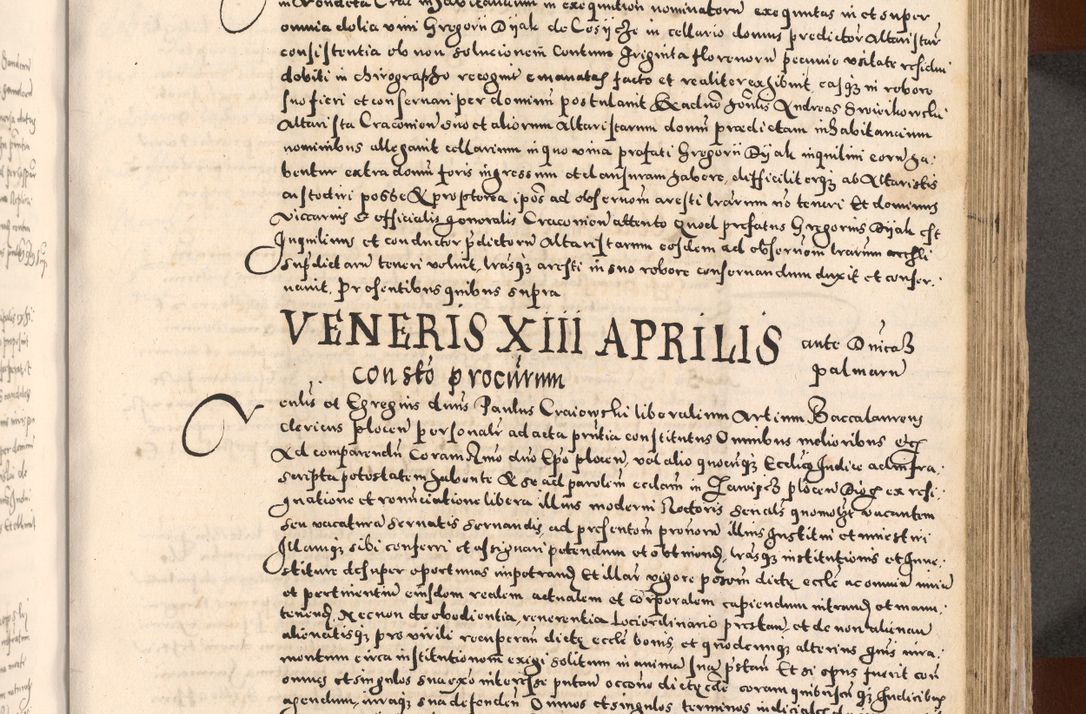 omnia dolia vini Gregorii Dyak de Cosycze in cellario domus predictor Altaristar
consistentia ob non solucionem centum triginta florenorum pecunie usitate residui
debiti in chirographo recognit emanatas facto et realiter exhibuit easq in robore
suo fieri et conservari per dominum postulavit Ex adverso honlis Andreas
Altarista Cracovien suo et aliorum Altaristarum domum praedictam inhabitancium
nominibus allegavit cellarium in quo vina prefati Gregorii Dyak inquilini eorum ha.
bentur extra domum foris ingressum et clausuram habere, difficiliterq ab Altaristis
custodiri posse & propterea ipsos ad observam aresti lrarum no teneri Et dominus
Viccarius & officialis generalis Cracovien attento quod prefatus Gregorius Dyak est
Inquilinus et conductor pdictorum Altaristarum eosdem ad observam lrarum aresti
supdictaru teneri voluit, lrasq aresti in suo robore conservandum duxit et conser.
vavit, presentibus quibus supra
VENERIS XIII APRILIS ante Dnicaz palmaru
consto procurum
enlis et Egregius dnus Paulus Craiowski liberalium Artium Baccalaureus
clericus plocen personalr ad acta pntia constitutus Omnibus melioribus etc
Ad comparendu Coram Rmo dno Epo plocen, vel alio quocumq Ecclico Judice ad infra
scripta potestatem habente & se ad parolem ecclam in plocen Dioc ex resi.
gnatione et renunciatione libera illius moderni Rectoris seu als quomolzt vacantem
seu vacatura servatis servandis, ad presentom pronorum illius Institui et investiri
Illamq sibi conferri et assignari petendum et obtinend, lrasq institutionis et Inve.
stiture desuper oportunas impetrand Et illar vigore possem dicte eccle ac omniu iuriu
et pertinentiu eiusdem realem actualem et corporalem capiendum intrand et manu.
tenend Necnon de obedientia, reverentia Loci ordinario prestan et de non alienan
alienatisq pro virili recuperan dicte eccle bonis, et quodcumq alterius gnis iura.
mentum circa institutionem exigi solitum in anima sua pstan Et si opus fuerit con
omnes et singulos sua exo interesse putan occone dicte eccle coram quibuscumq Judicibus
agendum, iuraq sua defenden Omnes et singulos terminos